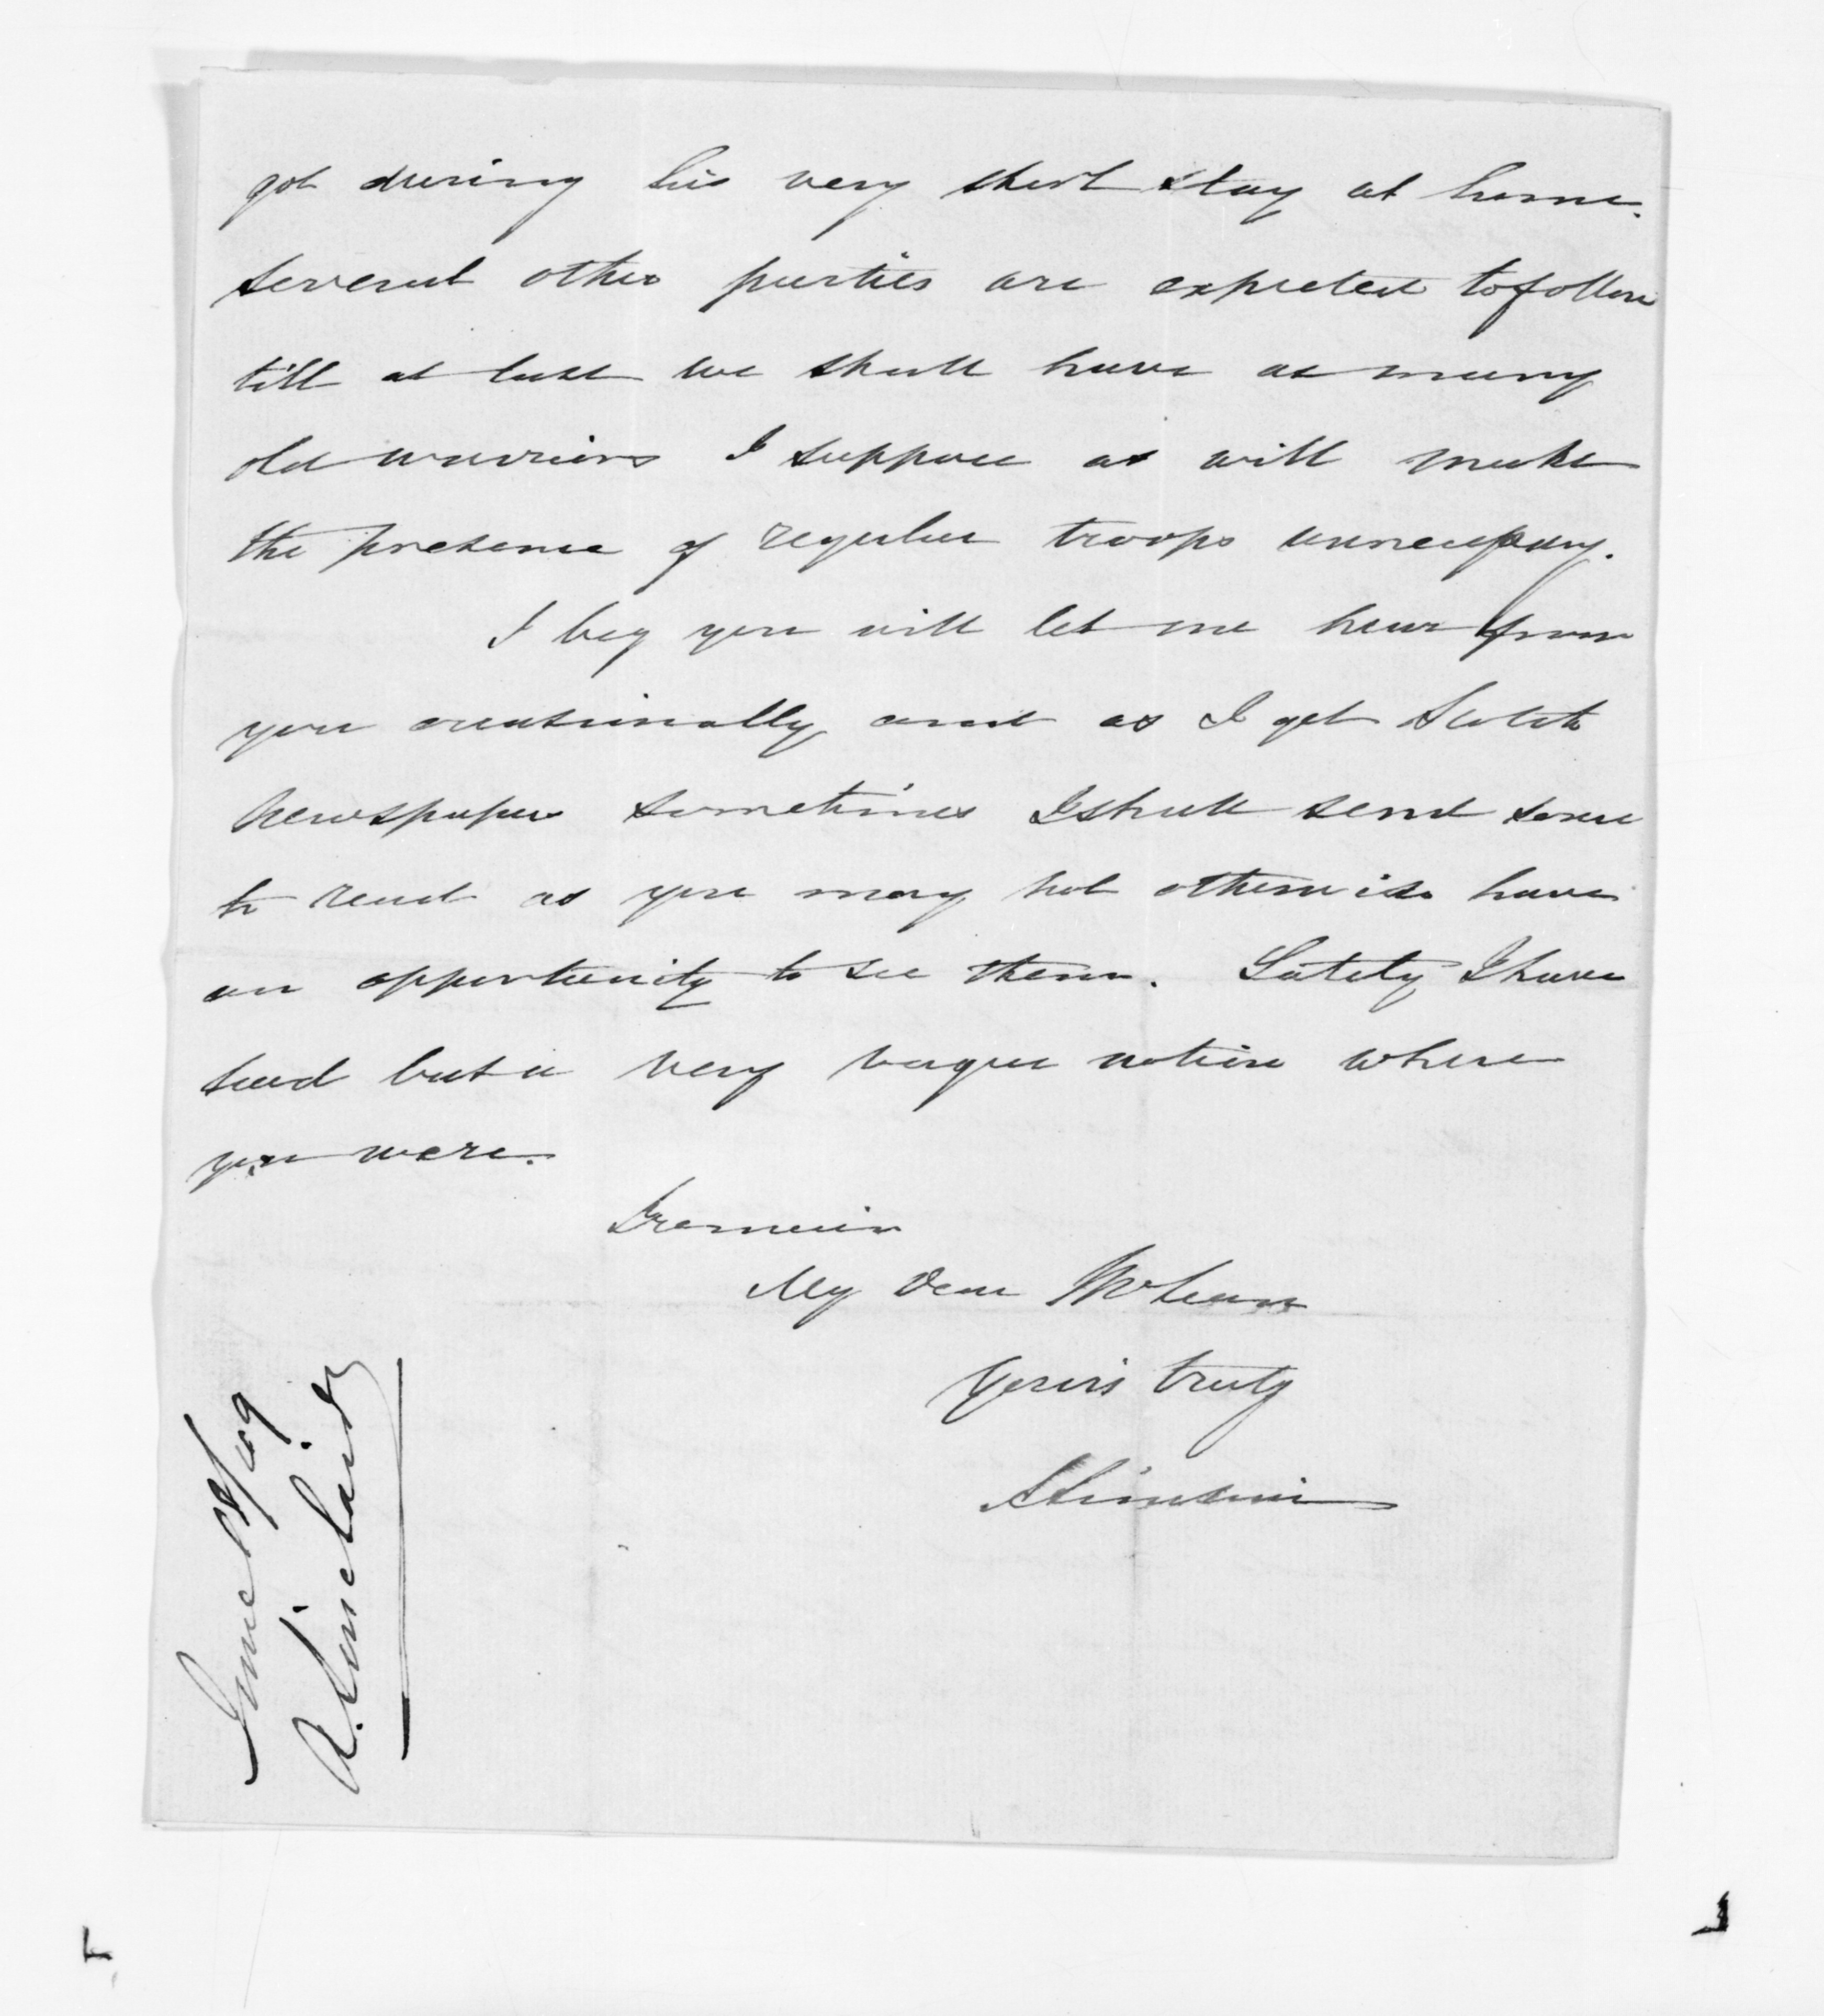 got during his very short stay at home.
several other parties are expected to follow
till at last we shall have as many
old warriors I suppose as will make
the presence of regular troops unnecessary.
I beg you will let me hear from
you occasionally and as I get Scotch
Newspapers sometimes I shall send some
to read as you may not otherwise have
an opportunity to see them. Lately I have
had but a very vague notion where
you were.
I remain
My Dear McLean
Yours truly
June 28/49
A. Sinclair